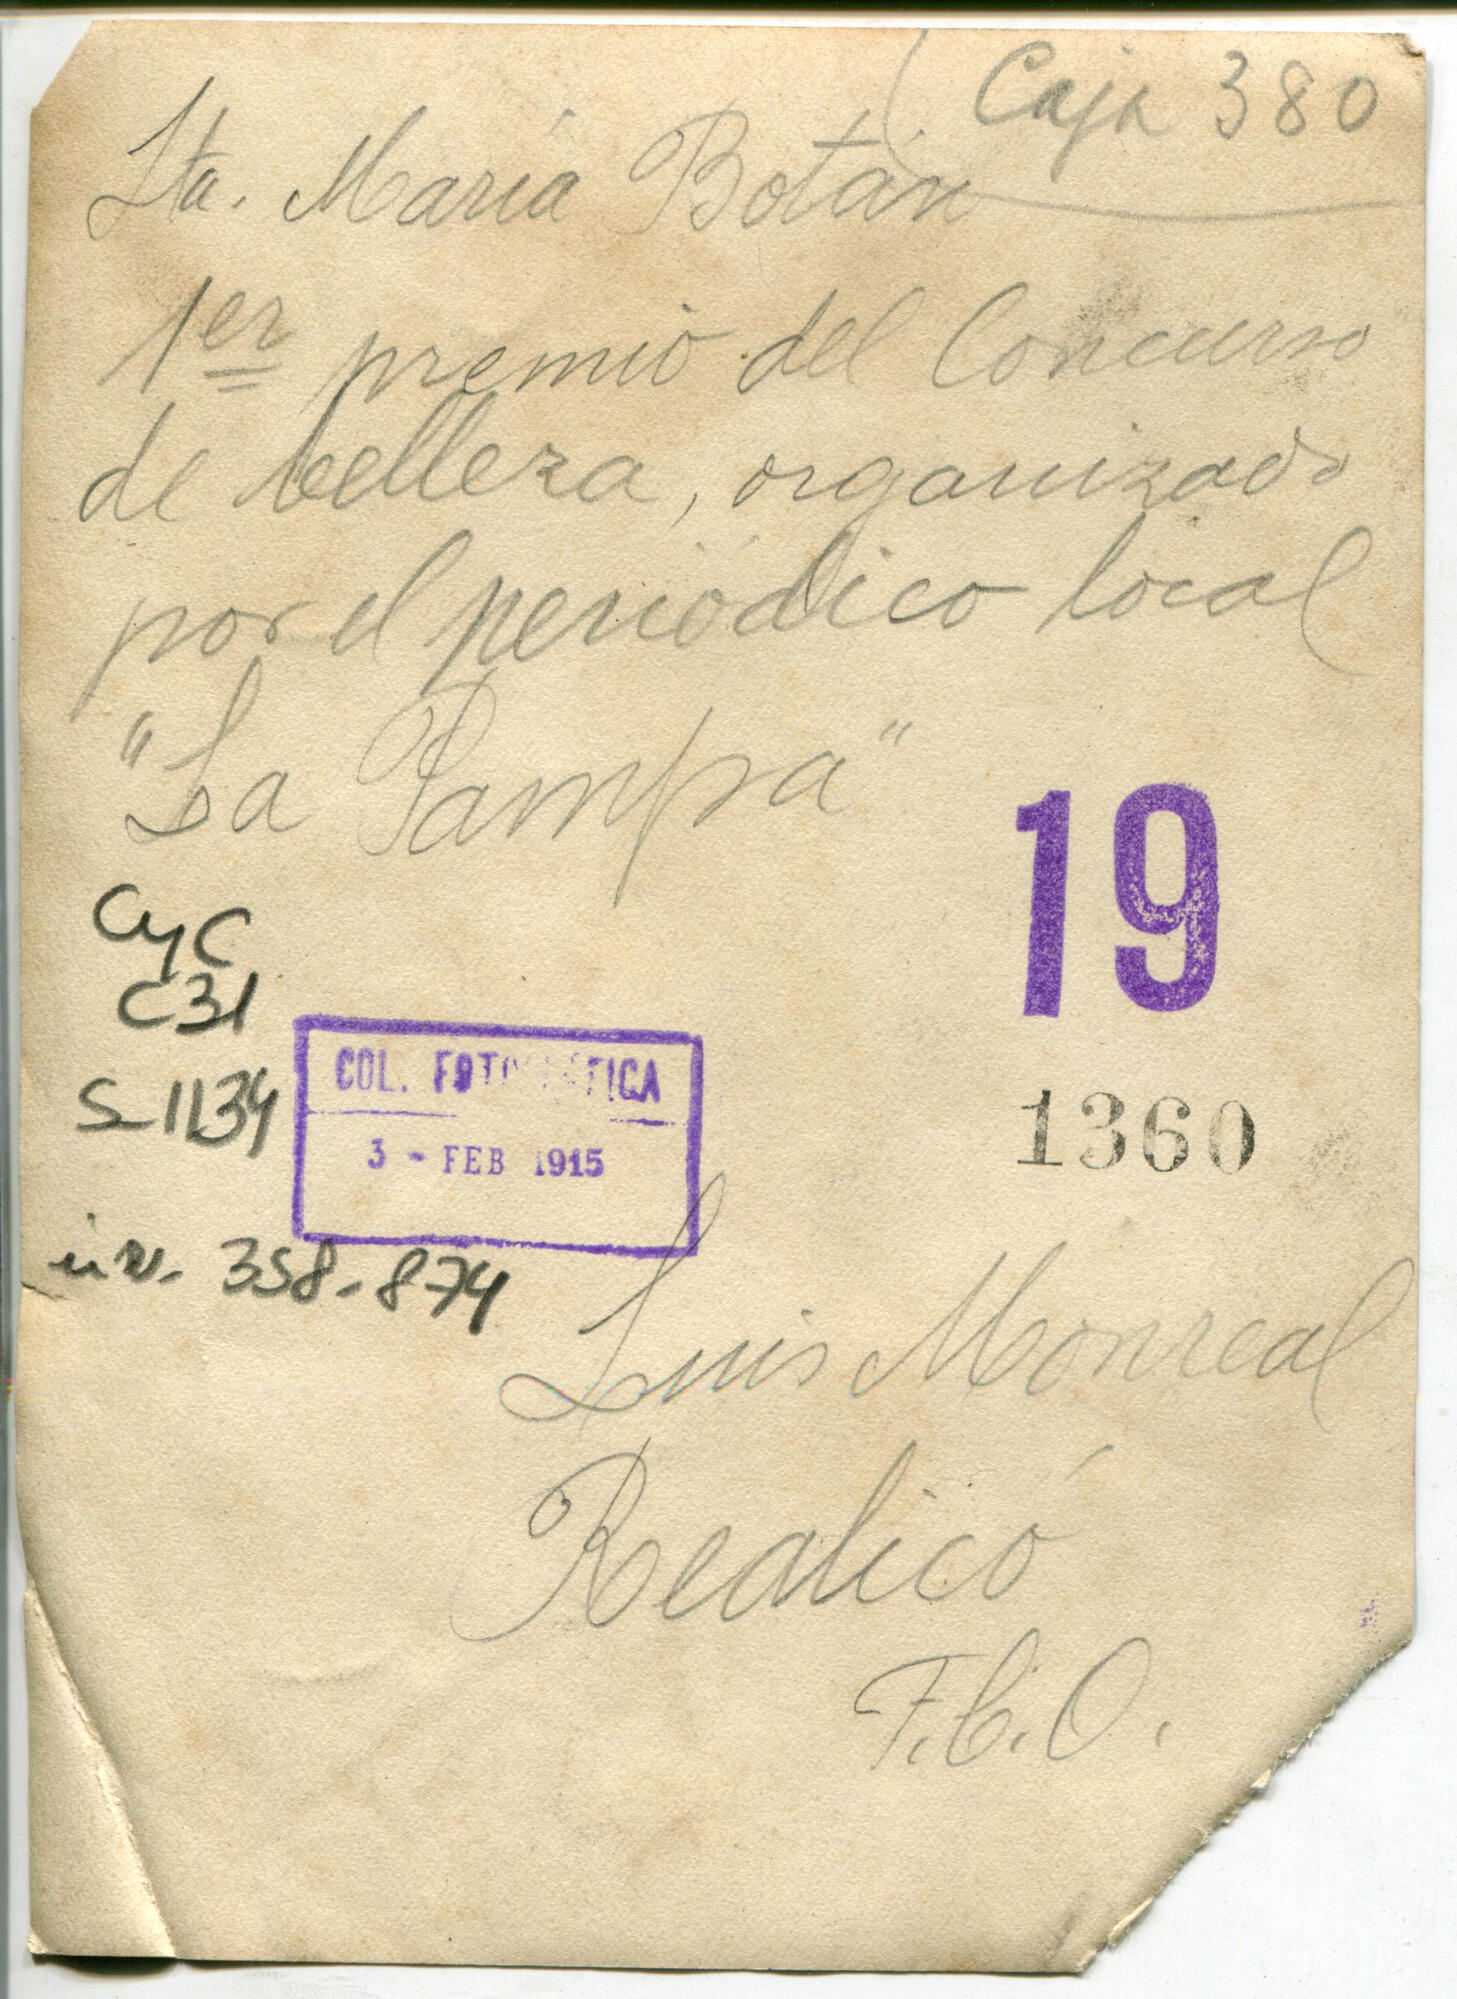 Caja 380
Sta. María Botán
1er premio del Concurso
de belleza, organizado
por el periódico local
"La Pampa"
19
CyC
C31
S-1134
COL. FOTO
3 - FEB 1915
1360
inv. 358.874
Luis Monreal
Realicó
F.C.O.